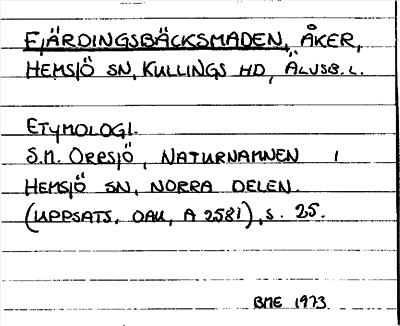 FJÄRDINGSBÄCKSMADEN, ÅKER,
HEMSJÖ SN, KULLINGS HD, ÄLVSB.L.
ETYMOLOGI.
S.M. ORRSJÖ, NATURNAMNEN I
HEMSJÖ SN, NORRA DELEN.
(UPPSATS, OAU, A 2581), s. 25.
BME 1973